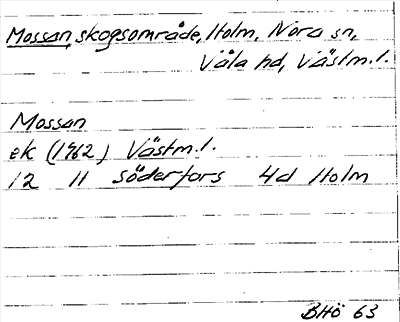 Mossan, skogsområde, Holm, Nora sn,
Våla hd, Västm.l.
Mossan
ek (1962) Västm.l.
12 H Söderfors 4d Holm
BHÖ 63